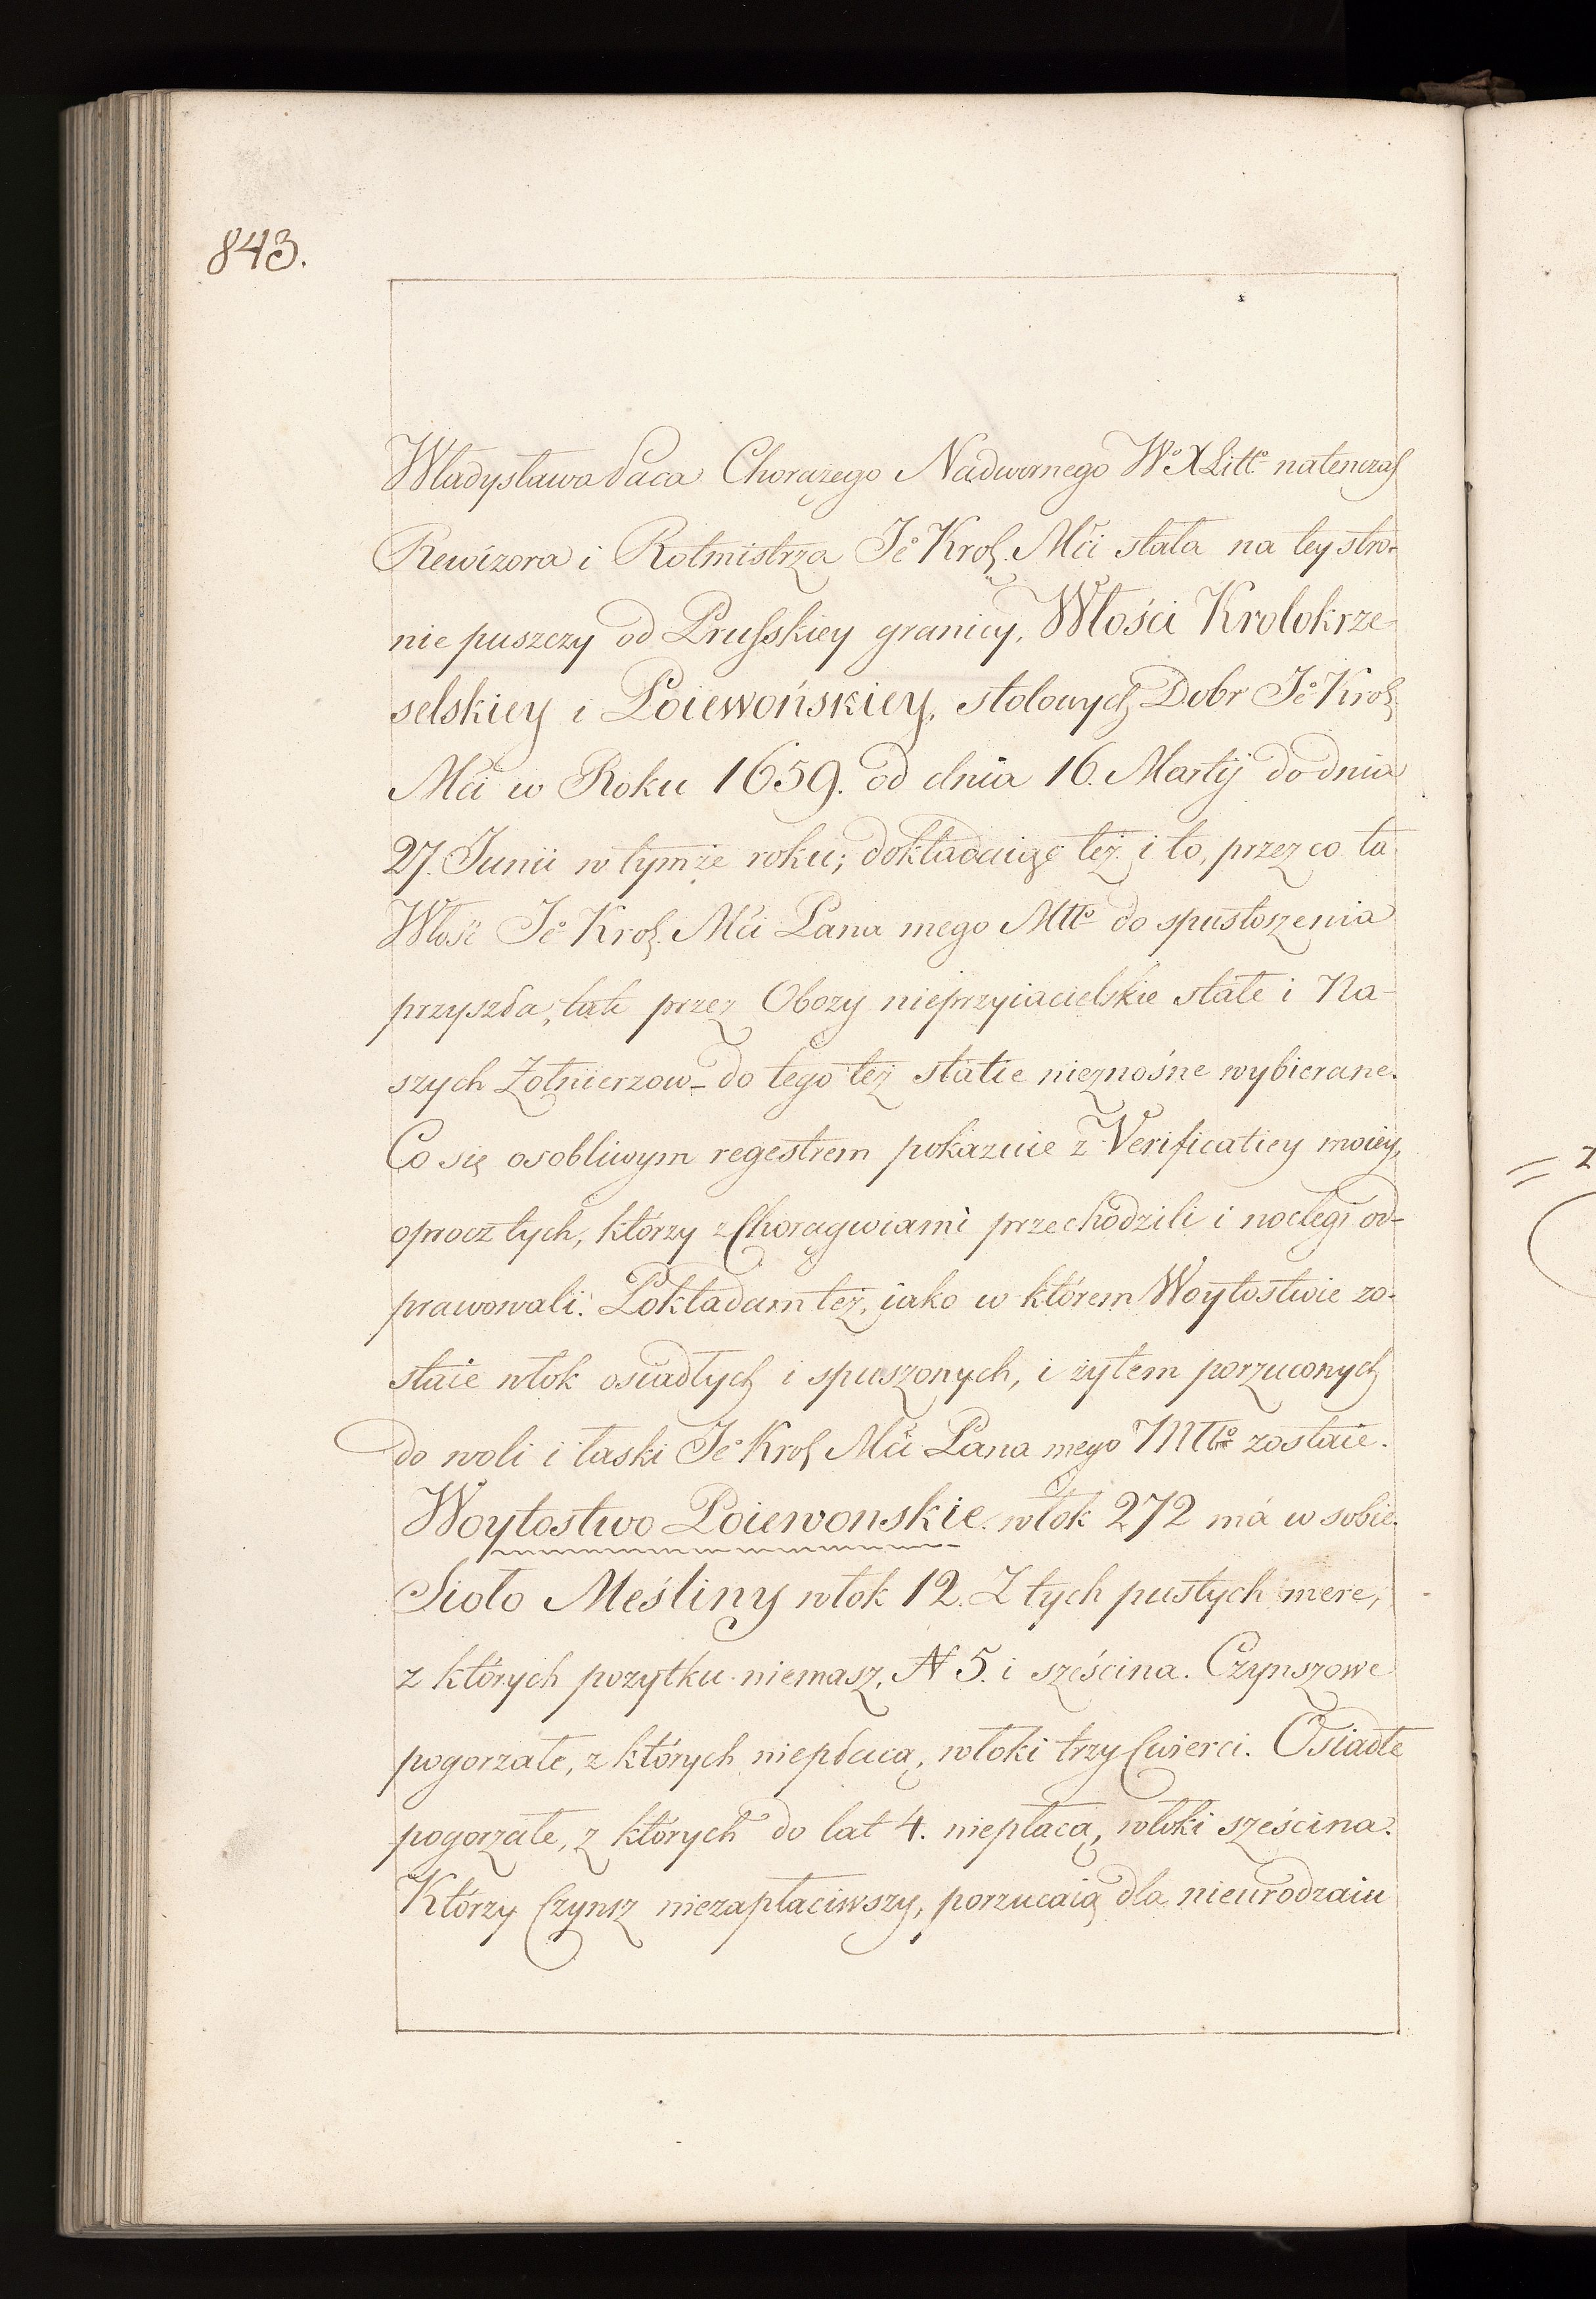 843.
Władysława Paca Chorążego Nadwornego Wo X Litto natenczas
Rewizora i Rotmistrza Jeo Krol. Mći stała na tey stro-
nie puszczy od Prusskiey granicy, Włości Krolokrze
selskiey i Poiewońskiey, stołowych Dobr Jeo Krol
Mći w Roku 1659. od dnia 16. Martij do dnia
27. Junii w tymże roku; dokładaiąc też i to, przez co ta
Włość Jeo Krol. Mći Pana mego Mttо do spustoszenia
przyszła, tak przez Obozy nieprzyiacielskie stałe i Na-
szych Żołnierzow do tego też statie nieznośne wybierane.
Co się osobliwym regestrem pokazuie z Verificatiey moiey,
oprocz tych, którzy z Chorągwiami przechodzili i noclegi od-
prawowali. Pokładam też, jako w którem Woytostwie zo-
staie włok osiadłych i spuszonych, i żytem porzuconych
do woli i łaski Jeo Krol Mći Pana mego Mttо zostaie.
Woytostwo Poiewonskie. włok 272 má w sobie.
Sioło Meśliny włok 12. Z tych pustych mere,
z których pozytku niemasz, N 5. i sześcina. Czynszowe
pogorzałe, z których niepłacą, włoki trzy Cwierci. Osiadłe
pogorzałe, z których do lat 4. niepłacą, włoki sześcina.
Którzy Czynsz niezapłaciwszy, porzucaią dla nieurodzaiu